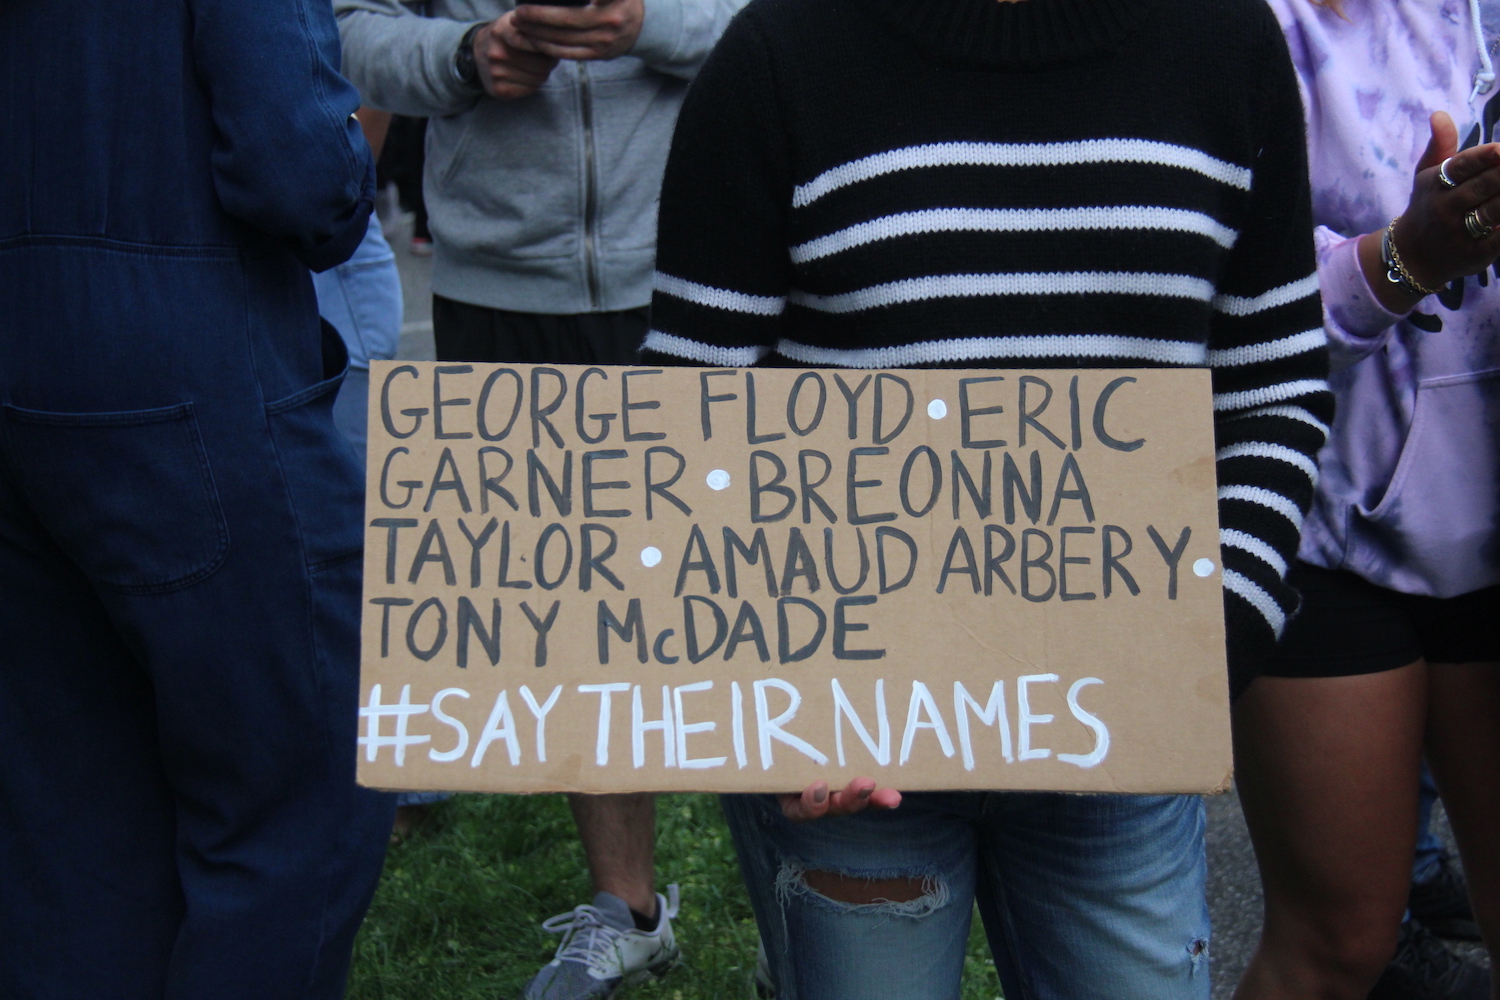 GEORGE FLOYD • ERIC
GARNER • BREONNA
TAYLOR • AMAUD ARBERY •
TONY McDADE
#SAY THEIR NAMES